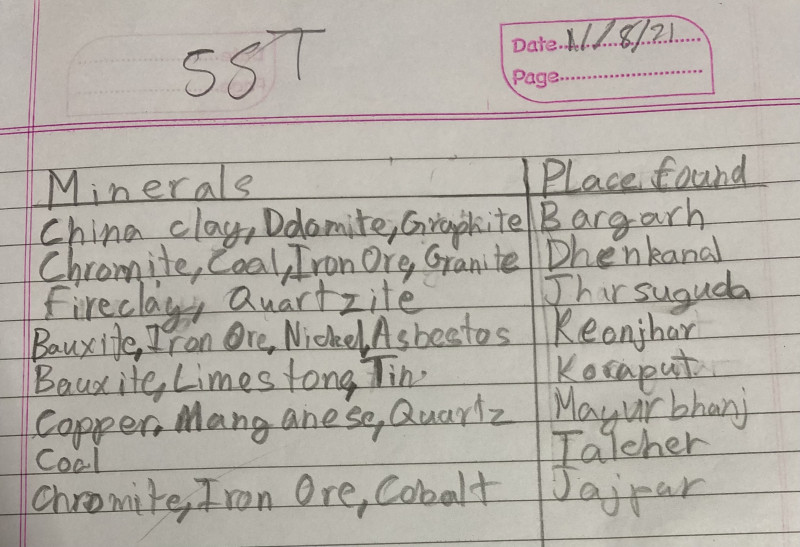 SST
Date 11/8/21
Page
Minerals Place found
China clay, Dolomite, Graphite Bargarh
Chromite, Coal, Iron Ore, Granite Dhenkanal
Fireclay, Quartzite Jharsuguda
Bauxite, Iron Ore, Nickel, Asbestos Keonjhar
Bauxite, Limestone, Tin. Koraput
Copper, Manganese, Quartz Mayurbhanj
Coal Talcher
Chromite, Iron Ore, Cobalt Jajpur